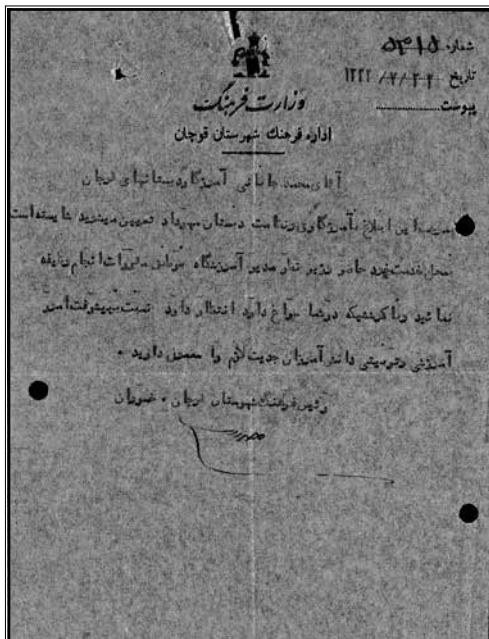 شماره ۵۴۱۵
تاریخ ۱۳۴۲/۷/۲۲
پیوست
وزارت فرهنگ
اداره فرهنگ شهرستان قوچان
آقای محمد جانفی آموزگار دبستانهای قوچان
بموجب این ابلاغ بآموزگاری دبستان مهرداد تعیین میشوید شایسته است
بمحل خدمت خود حاضر و زیر نظر مدیر آموزشگاه مقررات انجام وظیفه
نمائید در شما سراغ دارد انتظار دارد نسبت بپیشرفت امور
آموزشی و تربیتی دانش آموزان جدیت لازم را معمول دارید ۰
رئیس فرهنگ شهرستان قوچان ۰